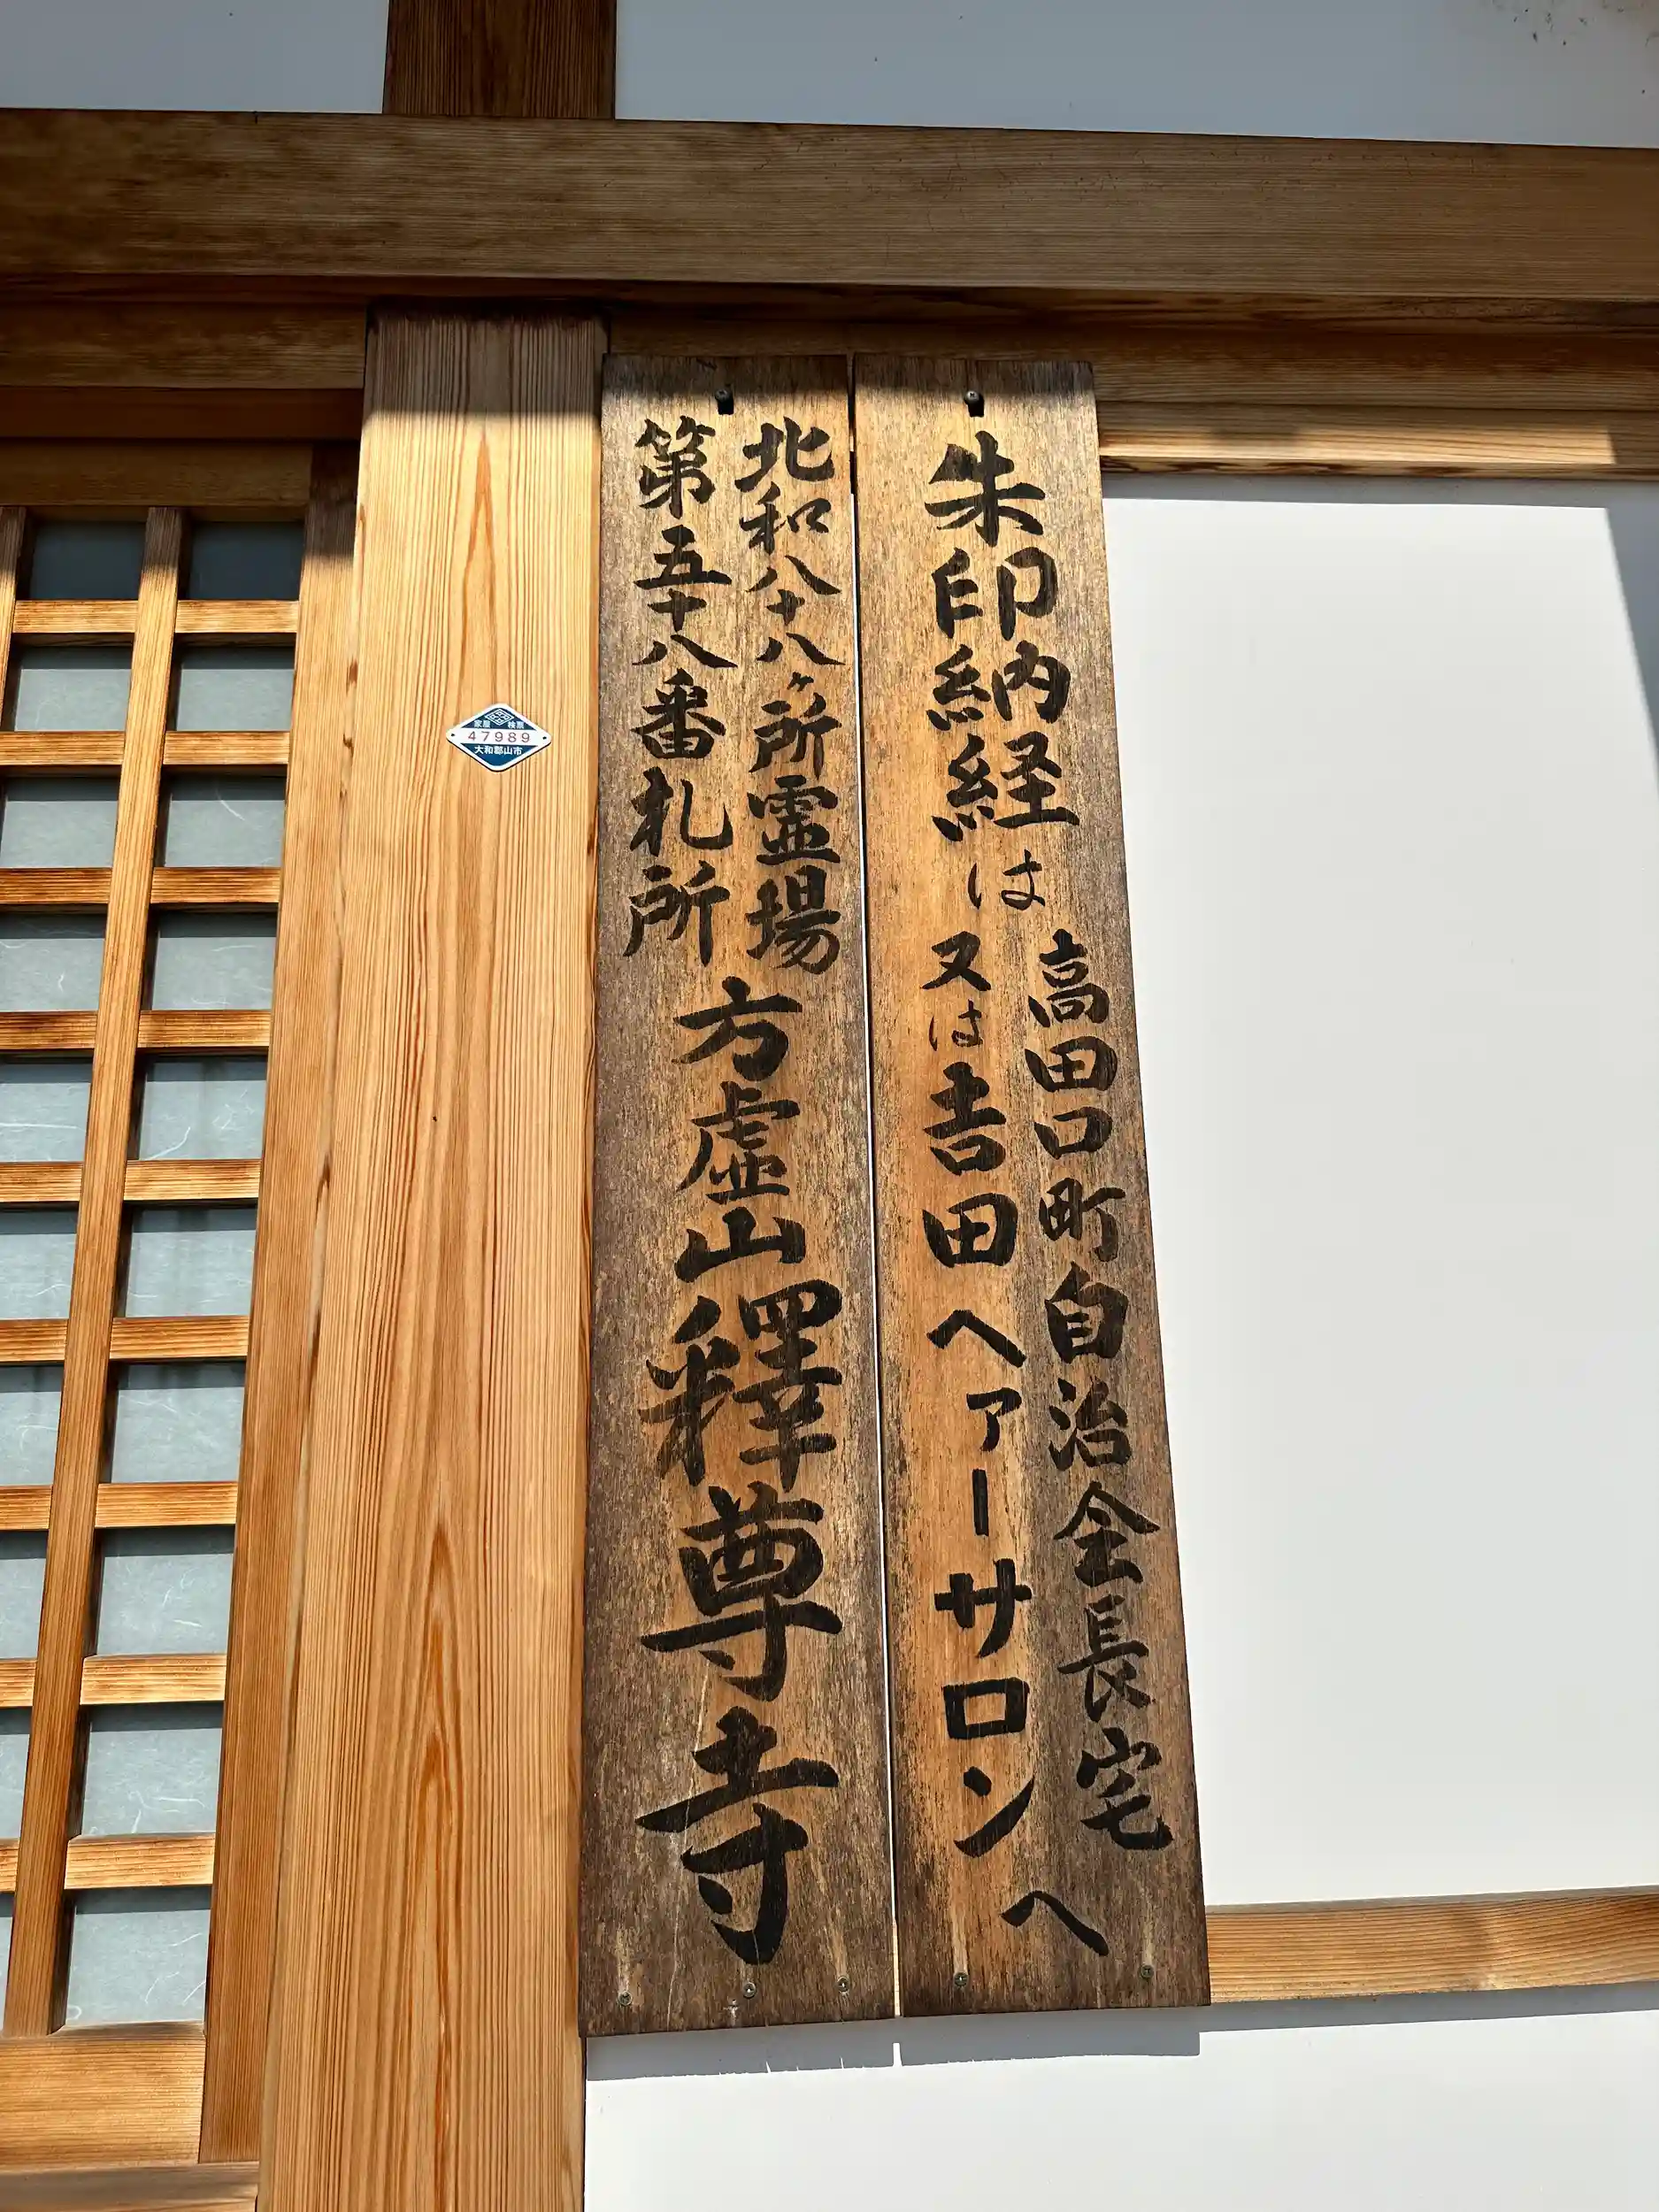 朱印納経は
高田口町自治会長宅
又は吉田ヘァーサロン
へ
北和八十八ヶ所霊場
第五十八番札所
方虚山釋尊寺
家屋 検票
47989
大和郡山市